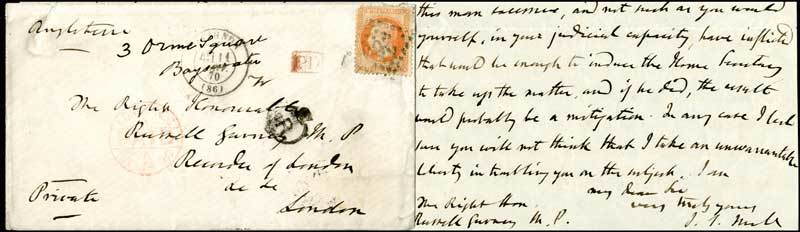 Angleterre
3 Orme Square
Bayswater
W
The Right Honourable
Russell Gurney M.P.
Recorder of London
&c &c
London
Private
70
(86)
PD
this man receives, and not such as you would
yourself, in your judicial capacity, have inflicted
that would be enough to induce the Home Secretary
to take up the matter, and if he did, the result
would probably be a mitigation. In any case I feel
sure you will not think that I take an unwarrantable
liberty in troubling you on the subject. I am
my dear Sir
very truly yours
J. S. Mill
The Right Hon.
Russell Gurney M.P.